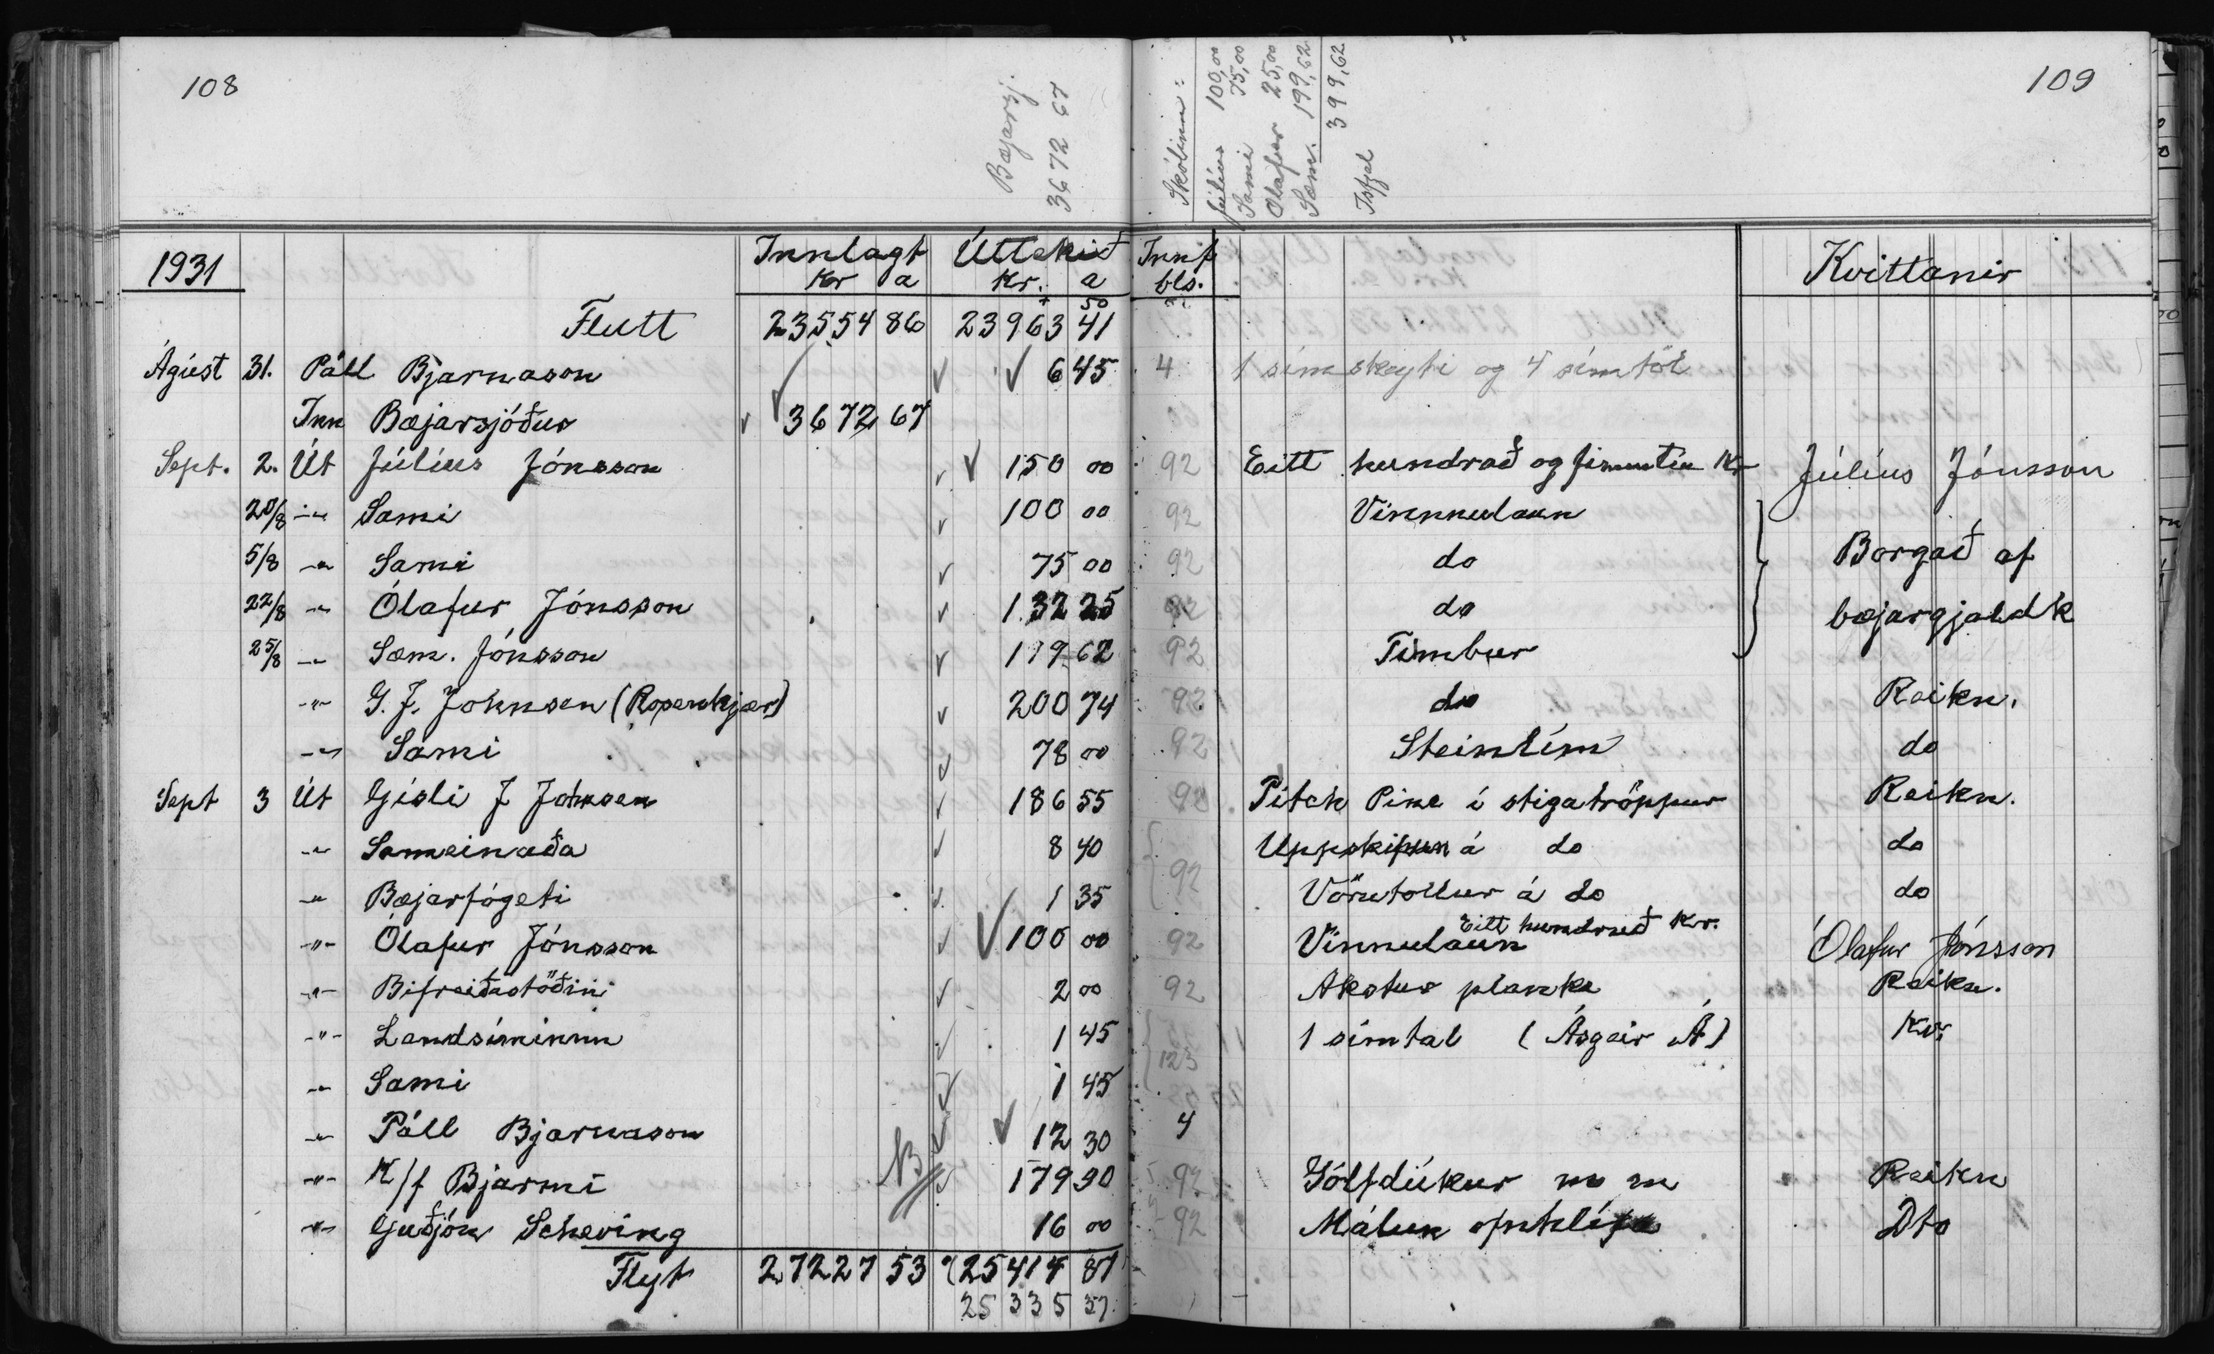 108
Bæjarsj.
3672 67
1931
Innlagt Úttekið
Kr a Kr. a
50
Flutt 23554 86 23963 41
Ágúst 31. Páll Bjarnason 6 45
Inn Bæjarsjóður 3672 67
Sept. 2. Út Júlíus Jónsson 150 00
20/8 -"- Sami 100 00
5/8 -"- Sami 75 00
22/8 -"- Ólafur Jónsson 132 25
25/8 -"- Sæm. Jónsson 199 62
-"- G. J. Johnsen (Rosenkjær) 200 74
-"- Sami 78 00
Sept 3 Út Gísli J Johnsen 186 55
-"- Sameinaða 8 40
-"- Bæjarfógeti 1 35
-"- Ólafur Jónsson 100 00
-"- Bifreiðastöðin 2 00
-"- Landsíminn 1 45
-"- Sami 1 45
-"- Páll Bjarnason 12 30
-"- K/f Bjarmi 179 90
-"- Guðjón Scheving 16 00
Flyt 27227 53 25414 87
25 335 37
109
Skólinn:
Júlíus 100,00
Sami 75,00
Ólafur 25,00
Sæm. 199,62
399,62
Innf. bls.
Kvittanir
4 1 símskeyti og 4 símtöl
92 Eitt hundrað og fimmtíu Kr Júlíus Jónsson
92 Vinnulaun
92 do Borgað af
92 do bæjargjaldk
92 Timbur
92 do Reikn.
92 Steinlím do
92 Pitch Pine í stigatröppur Reikn.
Uppskipun á do do
92 Vörutollur á do do
Eitt hundruð Kr.
92 Vinnulaun Ólafur Jónsson
92 Akstur planka Reikn.
1 símtal (Ásgeir Á) Kv.
123
4
92 Gólfdúkur m m Reikn
92 Málun Dto